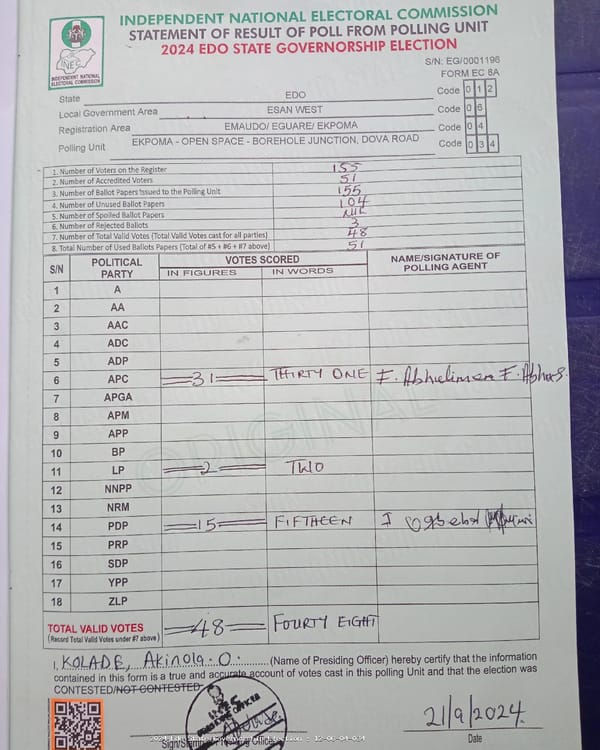 INDEPENDENT NATIONAL ELECTORAL COMMISSION
STATEMENT OF RESULT OF POLL FROM POLLING UNIT
2024 EDO STATE GOVERNORSHIP ELECTION
INEC
INDEPENDENT NATIONAL
ELECTORAL COMMISSION
S/N: EG/0001196
FORM EC 8A
State EDO Code 0 1 2
Local Government Area ESAN WEST Code 0 6
Registration Area EMAUDO/ EGUARE/ EKPOMA Code 0 4
Polling Unit EKPOMA - OPEN SPACE - BOREHOLE JUNCTION, DOVA ROAD Code 0 3 4
1. Number of Voters on the Register 155
2. Number of Accredited Voters 51
3. Number of Ballot Papers Issued to the Polling Unit 155
4. Number of Unused Ballot Papers 104
5. Number of Spoiled Ballot Papers NIL
6. Number of Rejected Ballots 3
7. Number of Total Valid Votes (Total Valid Votes cast for all parties) 48
8. Total Number of Used Ballots Papers (Total of #5 + #6 + #7 above) 51
S/N POLITICAL PARTY VOTES SCORED NAME/SIGNATURE OF POLLING AGENT
IN FIGURES IN WORDS
1 A
2 AA
3 AAC
4 ADC
5 ADP
6 APC 31 THIRTY ONE F.
7 APGA
8 APM
9 APP
10 BP
11 LP 2 TWO
12 NNPP
13 NRM
14 PDP 15 FIFTHEEN
15 PRP
16 SDP
17 YPP
18 ZLP
ORIGINAL
TOTAL VALID VOTES 48 FOURTY EIGHT
(Record Total Valid Votes under #7 above)
I, KOLADE, Akinola. O. (Name of Presiding Officer) hereby certify that the information
contained in this form is a true and accurate account of votes cast in this polling Unit and that the election was
CONTESTED/NOT CONTESTED.
21/9/2024.
Date